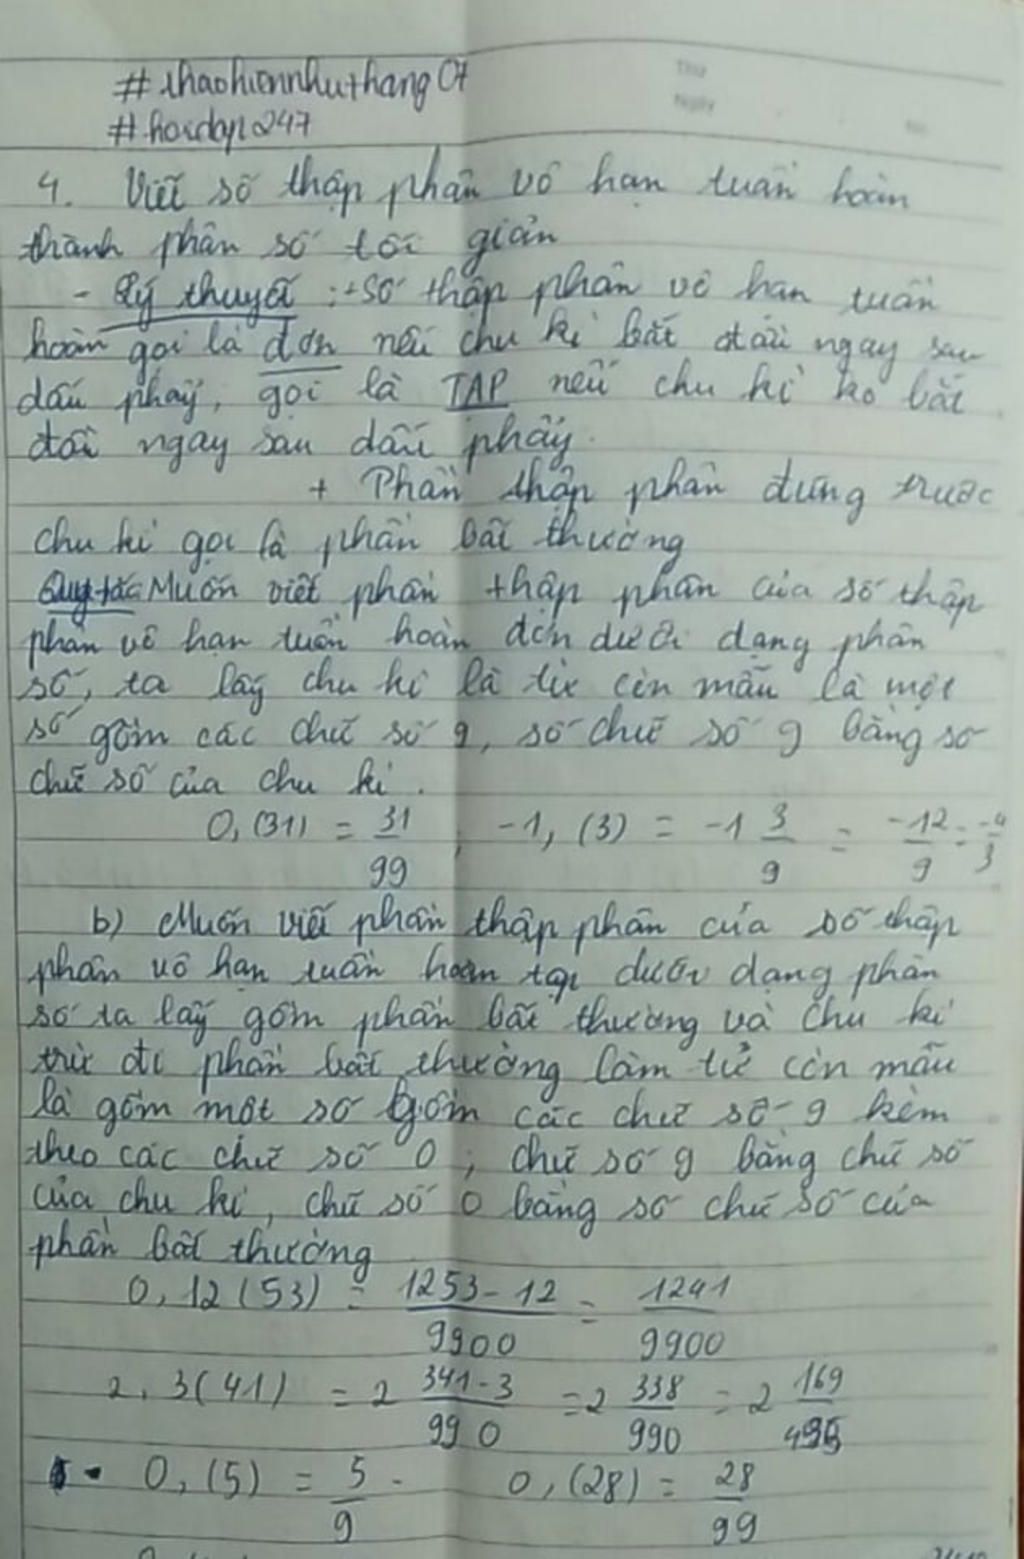 #thaohiennhuthang07
#hoidap247
Thứ
Ngày
4. Viết số thập phân vô hạn tuần hoàn
thành phân số tối giản
- Lý thuyết : + Số thập phân vô hạn tuần
hoàn gọi là đơn nếu chu kì bắt đầu ngay sau
dấu phẩy, gọi là TẠP nếu chu kì ko bắt
đầu ngay sau dấu phẩy.
+ Phần thập phân đứng trước
chu kì gọi là phần bất thường
Quy tắc Muốn viết phần thập phân của số thập
phân vô hạn tuần hoàn đơn dưới dạng phân
số, ta lấy chu kì là tử còn mẫu là một
số gồm các chữ số 9, số chữ số 9 bằng số
chữ số của chu kì.
0,(31) = 31/99 ; -1,(3) = -1 3/9 = -12/9 = -4/3
b) Muốn viết phần thập phân của số thập
phân vô hạn tuần hoàn tạp dưới dạng phân
số ta lấy gồm phần bất thường và chu kì
trừ đi phần bất thường làm tử còn mẫu
là gồm một số gồm các chữ số 9 kèm
theo các chữ số 0 ; chữ số 9 bằng chữ số
của chu kì, chữ số 0 bằng số chữ số của
phần bất thường
0,12(53) = 1253-12/9900 = 1241/9900
2,3(41) = 2 341-3/990 = 2 338/990 = 2 169/495
0,(5) = 5/9 . 0,(28) = 28/99